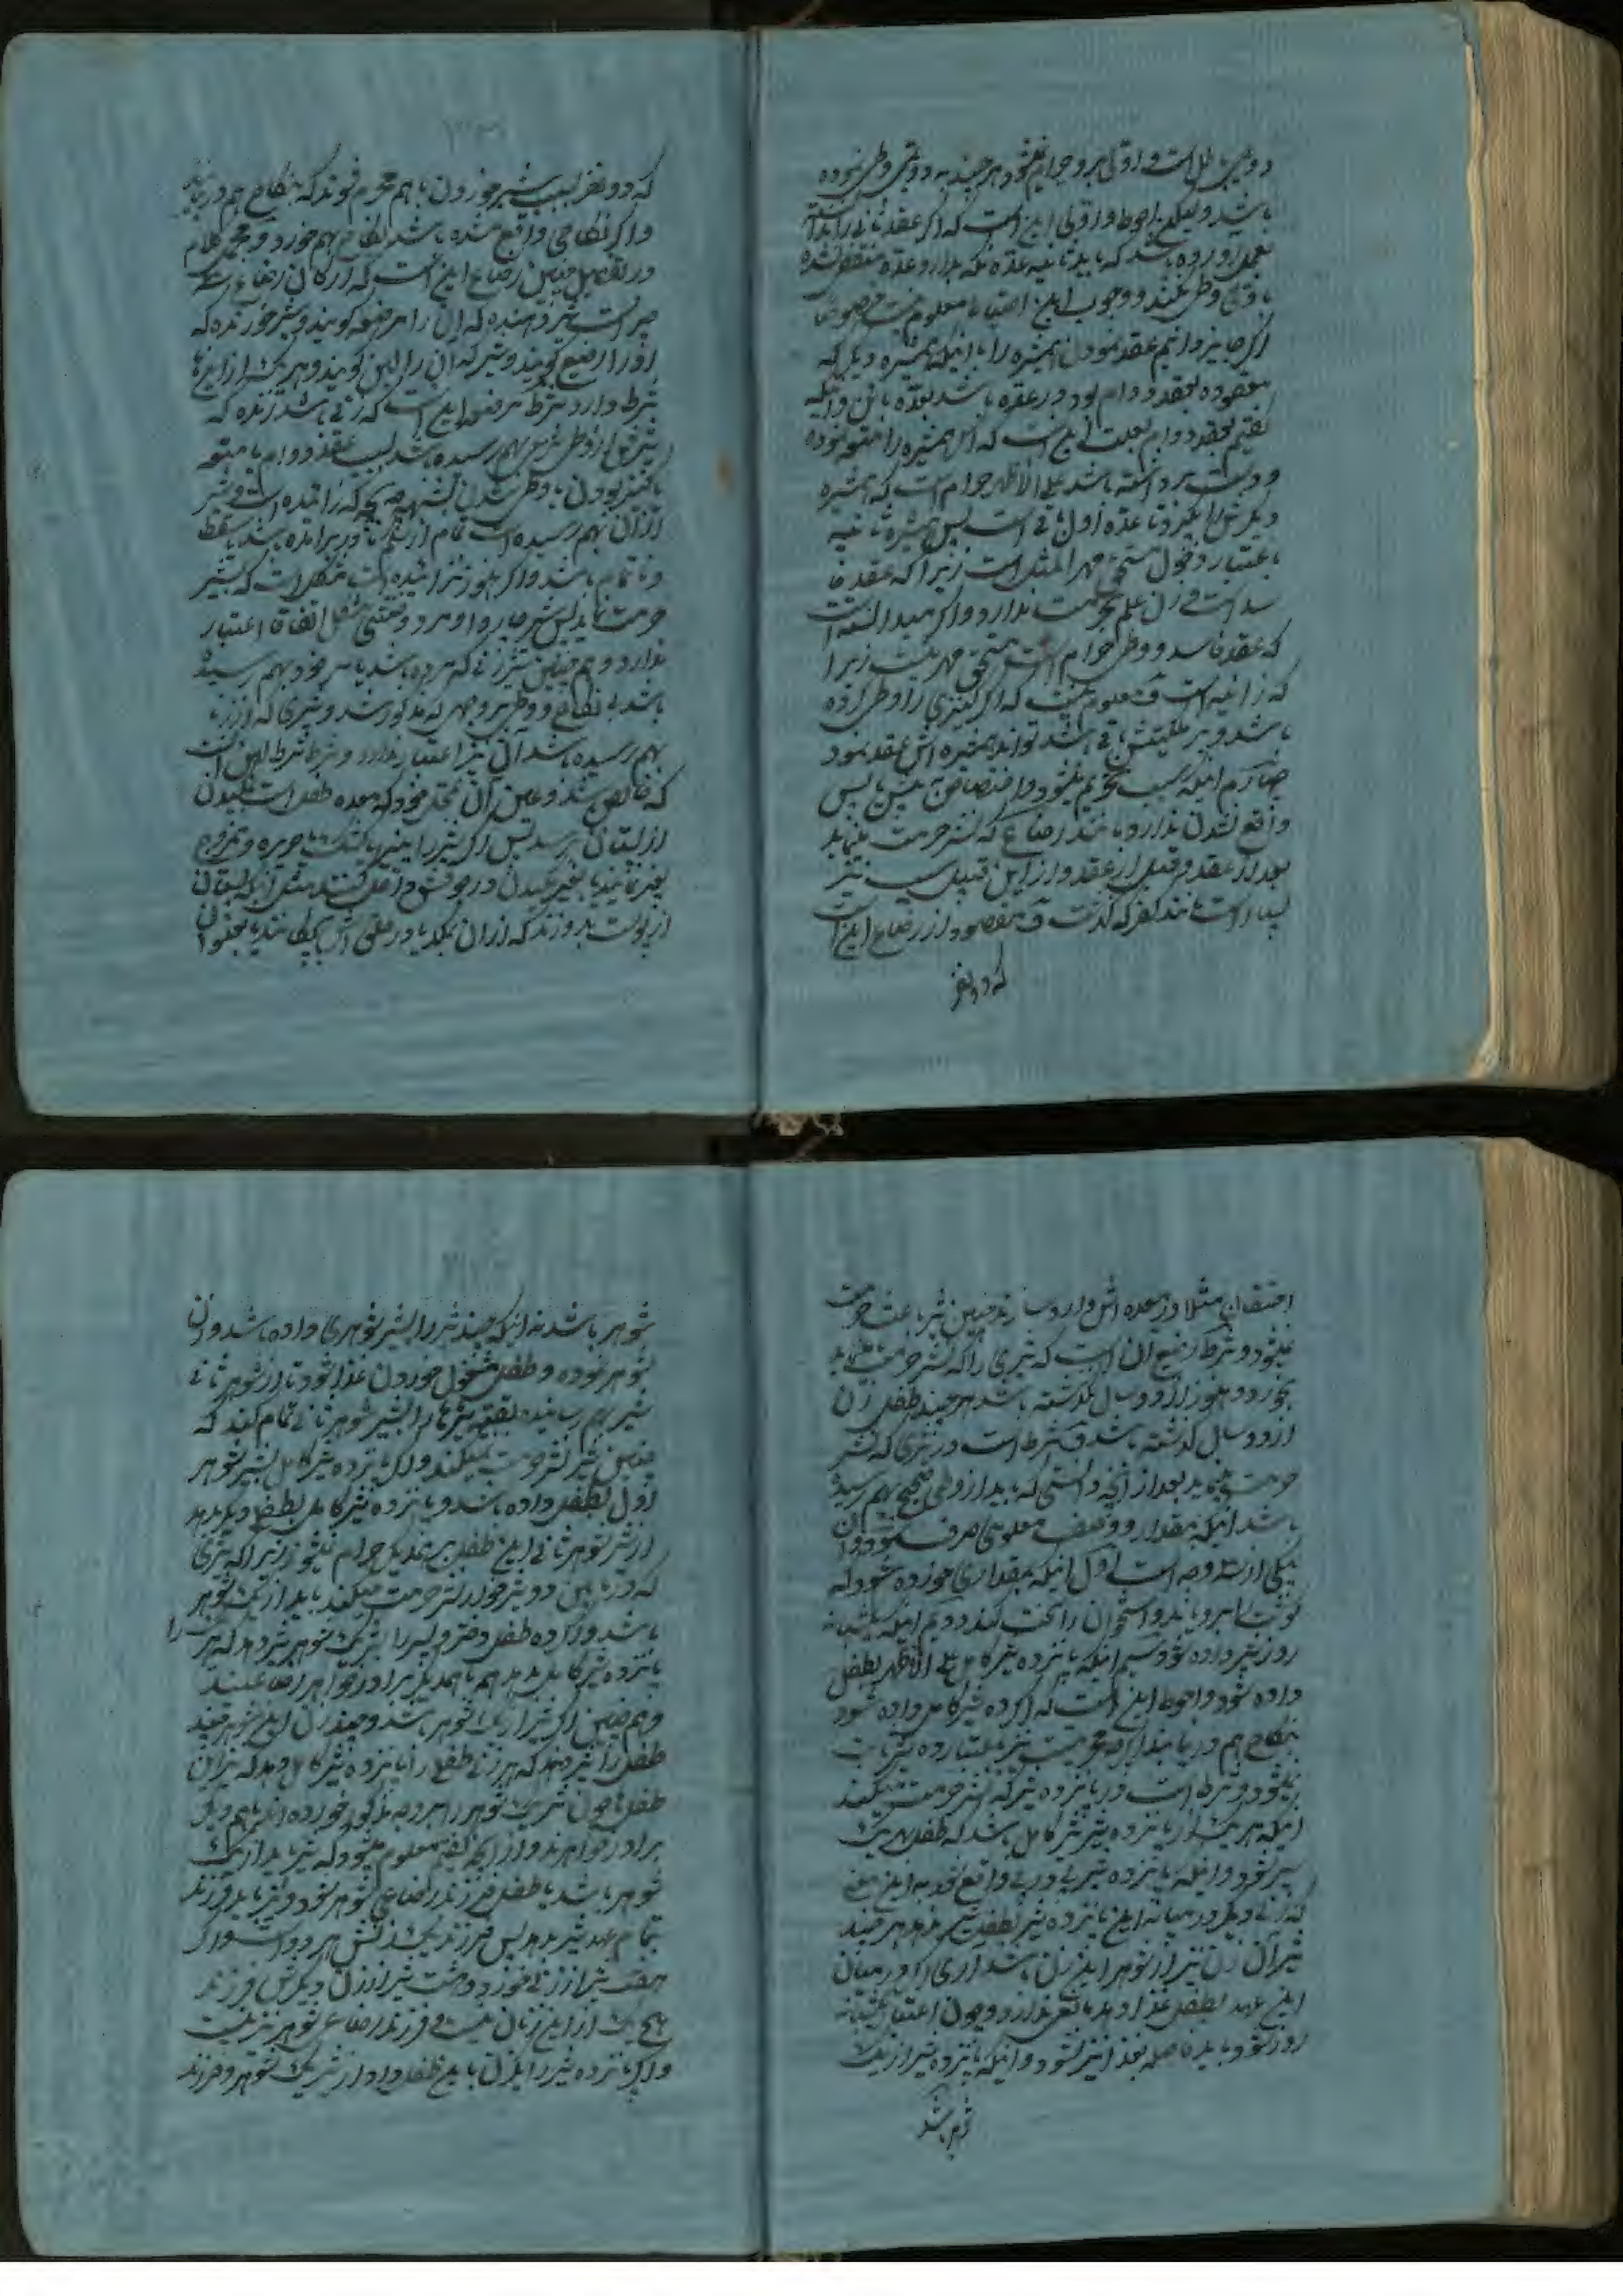 دومی باطل است و اولی بر او حرام نمیشود هر چند به دومی وطی نموده
باشد ولیکن احوط و اولی این است که اگر عقد ثانی را
باولی وطی نکند و وجوب این احتیاط معلوم نیست خصوصا
اگر جایز دانیم عقد نمودن همشیره را با اینکه همشیره دیگر که
معقوده بعقد دوام بود در عده باشد بعده باین و اینکه
گفتیم بعقد دوام بعلت این است که اگر همشیره را متعه نموده
و دست برداشته باشد علی الاظهر حرام است که همشیره
دیگرش را بگیرد تا عده اول باقی است پس همشیره ثانیه
باعتبار دخول مستحق مهر المثل است زیرا که عقد فا
سد است و زن علم بحرمت ندارد و اگر میدانسته است
که عقد فاسد و وطی حرام است مستحق مهر نیست زیرا
که زانیه است و معلوم نیست که اگر کنیزی را وطی کرده
باشد و بر ملکیتش باقی باشد تواند همشیره اش عقد نمود
چهارم اینکه سبب تحریم میشود و اختصاص به پیش یا پس
واقع شدن ندارد مانند رضاع که نشر حرمت مینماید
بعد از عقد و قبل از عقد و از این قبیل سبب نیز
بسیار است مانند کفر که گذشت و مقصود از رضاع این است
که دو نفر
که دو نفر بسبب شیر خوردن با هم محرم شوند که نکاح هم در نیایند
و اگر نکاحی واقع شده باشد نکاح بهم خورد و مجمل کلام
در تفصیل چنین رضاع این است که ارکان رضاع سه
چیز است شیر دهنده که آن را مرضعه گویند و شیر خورنده که
او را رضیع گویند و شیر که آن را لبن گویند و هر یک از اینها
شرط دارد شرط مرضعه این است که زنی باشد زنده که
شیرش از وطی بهم رسیده باشد بسبب عقد دوام یا متعه
یا کنیز بودن یا وطی شدن بشبهه بچه که زائیده است و شیر
از آن بهم رسیده است تمام از شکم مادر برآمده باشد یا سقط
و ناتمام باشد و اگر هنوز نزائیده است مشکل است که شیر
حرمت نماید پس شیر چاروا و مرد و خنثی مشکل اتفاقا اعتبار
ندارد و هم چنین شیر زنی که مرده باشد یا سر خود بهم رسیده
باشد بی نکاح و وطی بر وجهی که مذکور شد و شیری که از زنا
بهم رسیده باشد آن نیز اعتبار ندارد و شرط لبن آن است
که خالص باشد و عین آن بمحل خود که معده طفل است بمکیدن
از پستان برسد پس اگر شیر را پنیر یا کشک یا حریره و ممزوج
بغیر نمایند یا بغیر مکیدن در جوفش داخل کنند مثل اینکه پستان
از پوست بدوزند که از آن بمکد یا در حلقش بچکانند یا بعنوان
احتقان مثلا در معده اش وارد سازند چنین شیر باعث حرمت
نمیشود و شرط رضیع آن است که شیری را که نشر حرمت مینماید
بخورد و هنوز از دو سال نگذشته باشد هر چند طفل زن
از دو سال گذشته باشد و شرط است در شیری که نشر
حرمت مینماید بعد از آنچه دانستی که باید از وطی صحیح بهم رسیده
باشد اینکه مقدار و وصف معلومی صرف شود و آن
یکی از سه وجه است اول اینکه بمقداری خورده شود که
گوشت را برویاند و استخوان را سخت کند دوم اینکه یکشبانه
روز شیر داده شود سیم اینکه پانزده شیر کامل علی الاظهر بطفل
داده شود و احوط این است که اگر ده شیر کامل داده شود
نکاح هم در نیایند
میشود و شرط است در پانزده شیر که نشر حرمت میکند
اینکه هر یک از پانزده شیر شیر کامل باشد که طفل بهر یک
سیر شود و اینکه پانزده شیر پی در پی واقع شود باین معنی
که زنی دیگر در میانه این پانزده شیر بطفل شیر ندهد هر چند
شیر آن زن نیز از شوهر این زن باشد آری اگر در میان
این عدد بطفل غذا دهد مانعی ندارد و چون اعتبار یکشبانه
روز شود باید فاصله بغذا نیز نشود و اینکه پانزده شیر از یک
شوهر باشد
شوهر باشد نه اینکه چند شیر را بشیر شوهری داده باشد و زن
شوهر نموده و طفل مشغول خوردن غذا شود تا از شوهر ثانی
شیر بهم رساند بقیه شیرها را بشیر شوهر ثانی تمام کند که
چنین شیر نشر حرمت نمیکند و اگر پانزده شیر کامل بشیر شوهر
اول بطفل داده باشد و پانزده شیر کامل بطفل دیگر بدهد
از شیر شوهر ثانی این طفل بر یکدیگر حرام نمیشوند زیرا که شیری
که در مابین دو شیر خوار نشر حرمت میکند باید از یک شوهر
باشد و اگر ده طفل دختر و پسر را بشیر یک شوهر شیر دهد که هر را
پانزده شیر کامل بدهد هم با همدیگر برادر خواهر رضاعیند
و هم چنین اگر شیر از یک شوهر باشد و چند زن این شوهر چند
طفل را شیر دهند که هر زنی طفلی را پانزده شیر کامل دهد که این
طفلها چون شیر یک شوهر را بر وجه مذکور خورده اند با هم دیگر
برادر خواهرند و از آنچه گفتیم معلوم میشود که شیر باید از یک
شوهر باشد تا طفل فرزند رضاعی شوهر شود و نیز باید زن
تمام عدد شیر بدهد پس فرزند یک زنش هر دو است و اگر
هفت شیر از زنی خورد و هشت شیر از زن دیگرش فرزند
هیچ یک از این زنان نیست و فرزند رضاعی شوهر نیز نیست
و اگر پانزده شیر را این زن باین طفل داد از شیر یک شوهر و فرزند